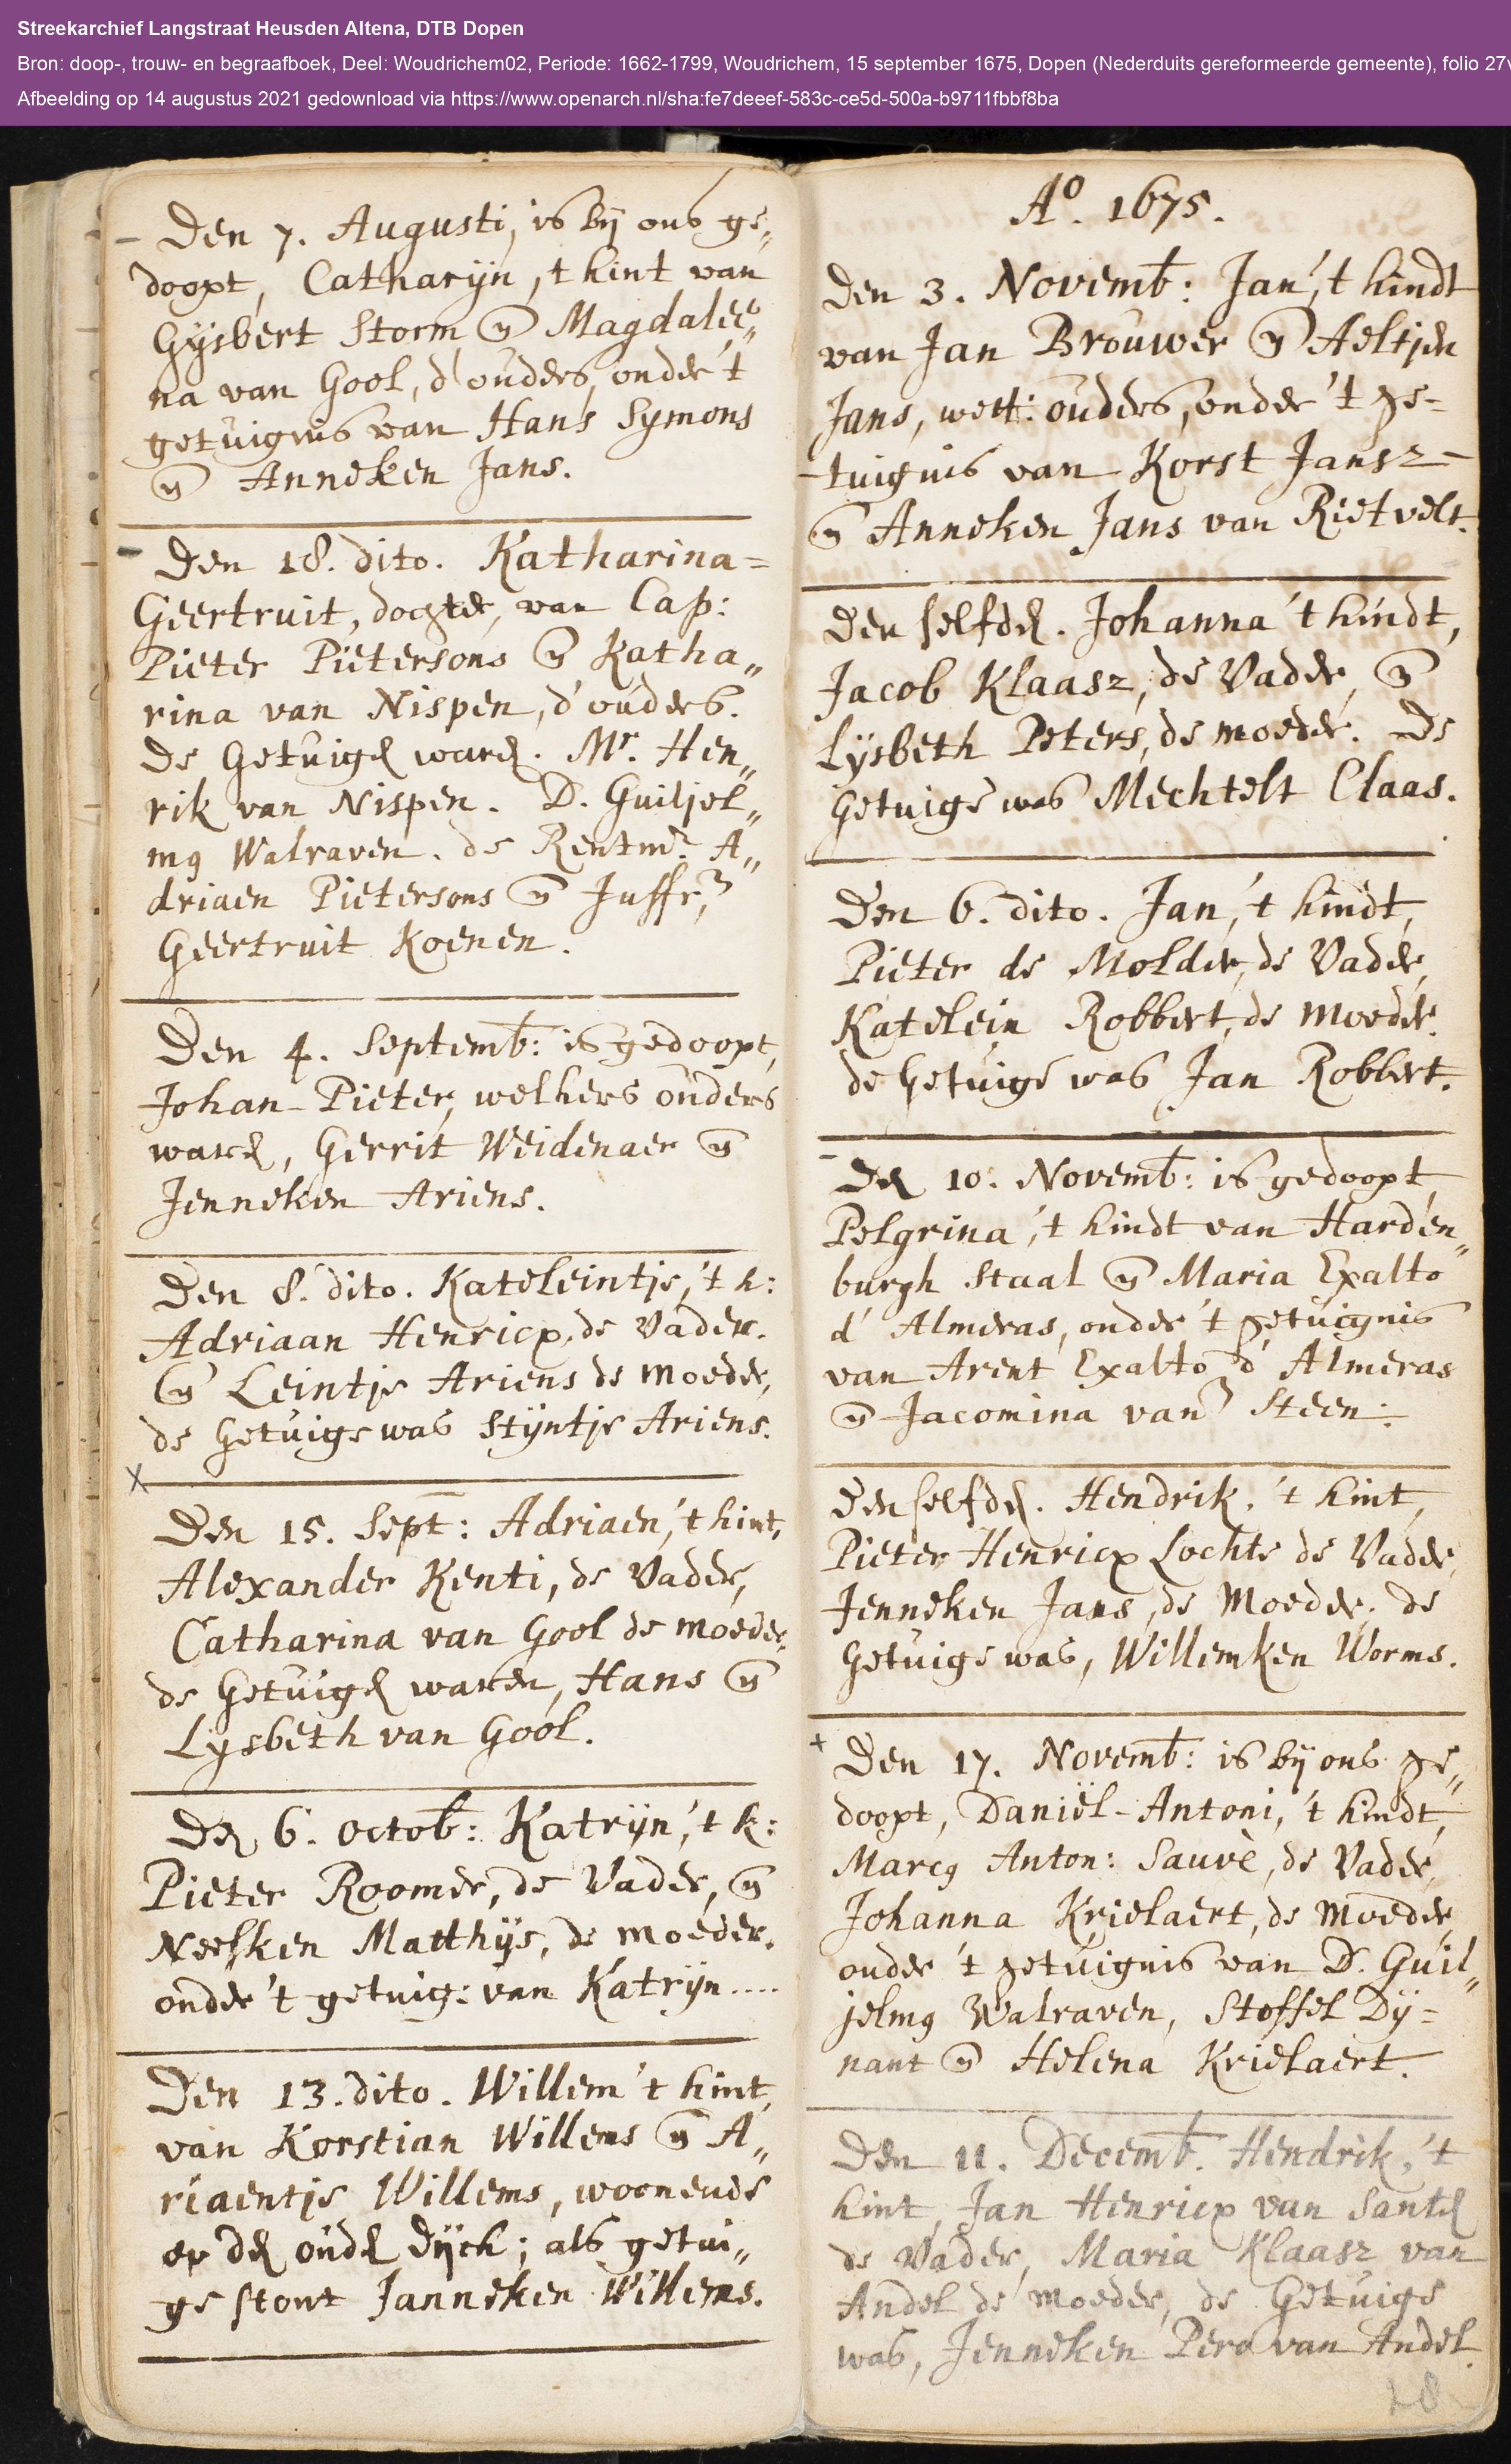 Streekarchief Langstraat Heusden Altena, DTB Dopen
Bron: doop-, trouw- en begraafboek, Deel: Woudrichem02, Periode: 1662-1799, Woudrichem, 15 september 1675, Dopen (Nederduits gereformeerde gemeente), folio 27v
Afbeelding op 14 augustus 2021 gedownload via https://www.openarch.nl/sha:fe7deeef-583c-ce5d-500a-b9711fbbf8ba
Den 7. Augusti, is bÿ ons ge„
doopt, Catharÿn, t kint van
Gÿsbert Storm eñ Magdalee„
na van Gool, d'ouders, onder 't
getuignis van Hans Symons
eñ Anneken Jans.
Den 18. dito. Katharina=
Geertruit, dochter, van Cap:
Pieter Pietersons eñ Katha„
rina van Nispen, d'ouders.
De Getuigen waren. Mr. Hen„
rik van Nispen. D. Guiljel„
mus Walraven. de Rentmr. A„
driaen Pietersons eñ Juffr.
Geertruit Koenen.
Den 4. Septemb: is gedoopt,
Johan-Pieter, welkers ouders
waren, Gerrit Weidenaer eñ
Jenneken Ariens.
Den 8. dito. Kateleintje, 't k:
Adriaan Henricx, de Vader.
eñ Leintje Ariens de moeder,
de Getuige was Stÿntje Ariens.
Den 15. Sept: Adriaen, 't kint,
Alexander Kenti, de Vader,
Catharina van Gool de moeder,
de Getuigen waren, Hans eñ
Lysbeth van Gool.
Den 6. Octob: Katrÿn, 't k:
Pieter Roomer, de Vader, eñ
Neesken Matthÿs, de moeder.
onder 't getuig: van Katrÿn....
Den 13. dito. Willem 't kint,
van Korstian Willems eñ A„
riaentje Willems, woonende
op den ouden Dÿck; als getui„
ge stont Janneken Willems.
Ao. 1675.
Den 3. Novemb: Jan, 't kindt
van Jan Brouwer eñ Aeltjen
Jans, wett: ouders, onder 't ge-
-tuignis van Korst Jansz-
eñ Anneken Jans van Rietvelt.
Den selfden. Johanna 't kindt,
Jacob Klaasz, de Vader, eñ
Lÿsbeth Peters, de moeder. De
Getuige was Mechtelt Claas.
Den 6. dito. Jan, 't kindt,
Pieter de Molder, de Vader,
Katelein Robbert, de moeder.
de Getuige was Jan Robbert.
Den 10. Novemb: is gedoopt
Pelgrina, 't kindt van Harden„
burgh Staal eñ Maria Exalto
d' Almeras, onder 't getuignis
van Arent Exalto d' Almeras
eñ Jacomina van Steen:
Den selfden. Hendrik, 't kint,
Pieter Henricx Lochte de Vader,
Jenneken Jans, de Moeder. de
Getuige was, Willemken Worms.
Den 17. Novemb: is bÿ ons ge„
doopt, Daniël-Antoni, 't kindt,
Marcus Anton: Sauvè, de Vader,
Johanna Krielaert, de Moeder,
onder 't getuignis van D. Guil„
jelmus Walraven, Stoffel Dÿ=
nant eñ Helena Krielaert.
Den 11. Decemb. Hendrik, 't
kint, Jan Henricx van Santen
de Vader, Maria Klaasz van
Andel de moeder, de Getuige
was, Jenneken Pero van Andel.
28